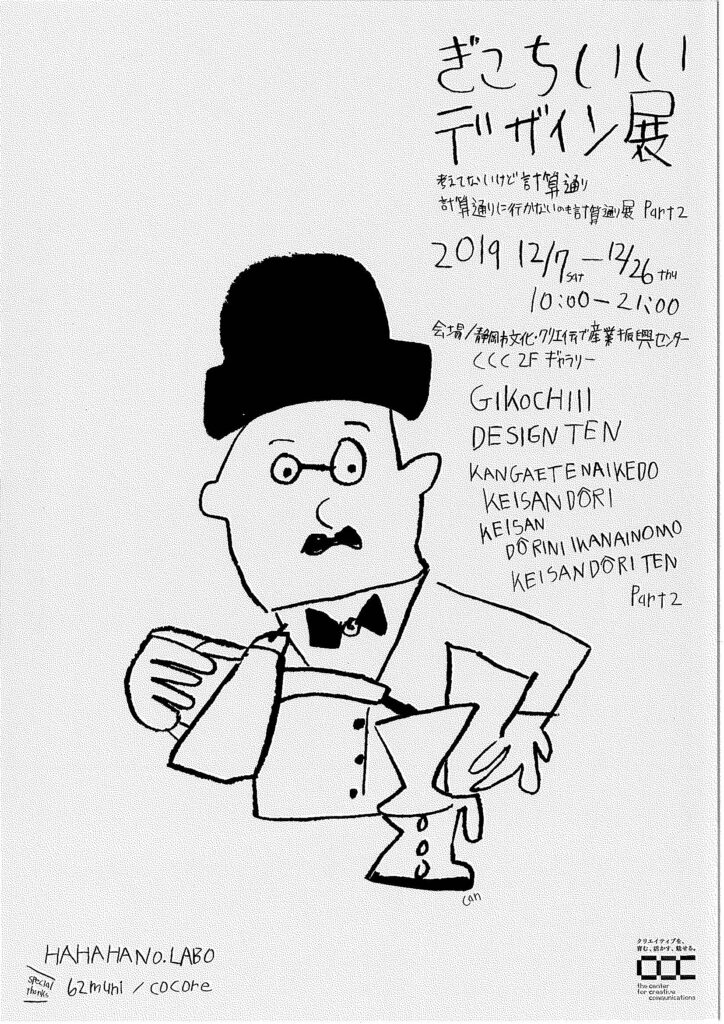 ぎこちいい
デザイン展
考えてないけど計算通り
計算通りに行かないのも計算通り展 Part2
2019 12/7 SAT — 12/26 THU
10:00 – 21:00
会場/静岡市文化・クリエイティブ産業振興センター
CCC 2F ギャラリー
GIKOCHIII
DESIGN TEN
KANGAETENAIKEDO
KEISANDÔRI
KEISAN
DÔRINI IKANAINOMO
KEISANDÔRI TEN
Part2
can
HAHAHANO.LABO
special thanks 62muni / cocore
クリエイティブを、
育む、活かす、魅せる。
CCC
the center
for creative
communications